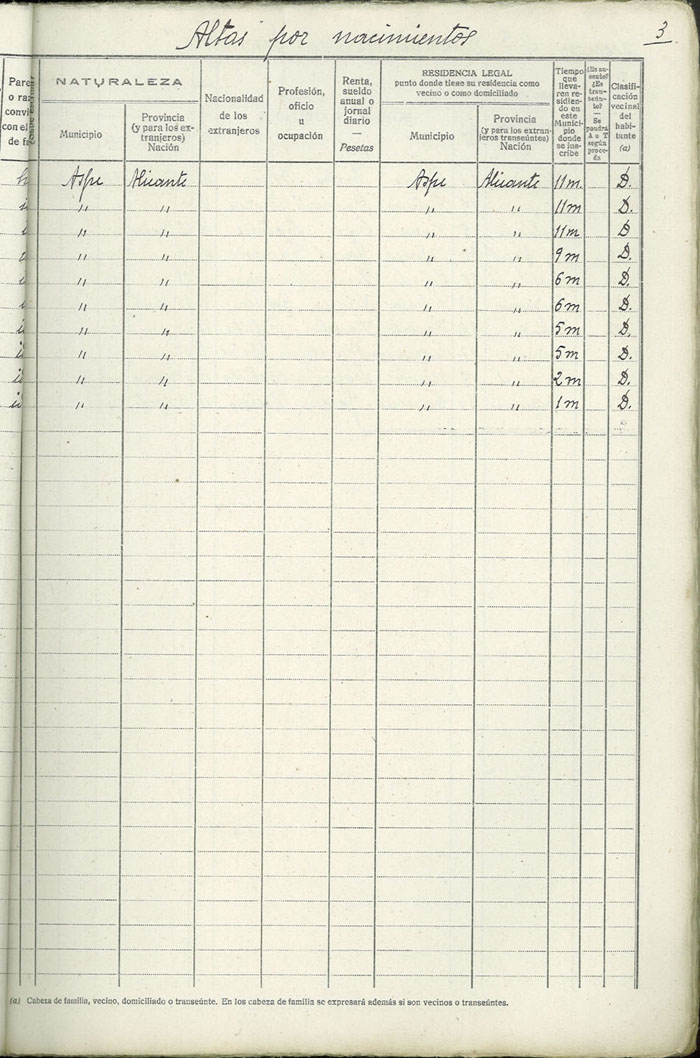 Altas por nacimientos 3
NATURALEZA
Municipio
Provincia
(y para los ex-
tranjeros)
Nación
Nacionalidad
de los
extranjeros
Profesión,
oficio
u
ocupación
Renta,
sueldo
anual o
jornal
diario
—
Pesetas
RESIDENCIA LEGAL
punto donde tiene su residencia como
vecino o como domiciliado
Municipio
Provincia
(y para los extran-
jeros transeúntes)
Nación
Tiempo
que
lleva-
ren re-
sidien-
do en
este
Munici-
pio
donde
se ins-
cribe
¿Es au-
sente?
¿Es
tran-
seún-
te?
—
Se
pondrá
A o T
según
proce-
da
Clasifi-
cación
vecinal
del
habi-
tante
(a)
Aspe Alicante Aspe Alicante 11 m. D.
" " " " 11 m D.
" " " " 11 m D
" " " " 9 m D.
" " " " 6 m D.
" " " " 6 m D.
" " " " 5 m D.
" " " " 5 m D.
" " " " 2 m D.
" " " " 1 m D.
(a) Cabeza de familia, vecino, domiciliado o transeúnte. En los cabeza de familia se expresará además si son vecinos o transeúntes.